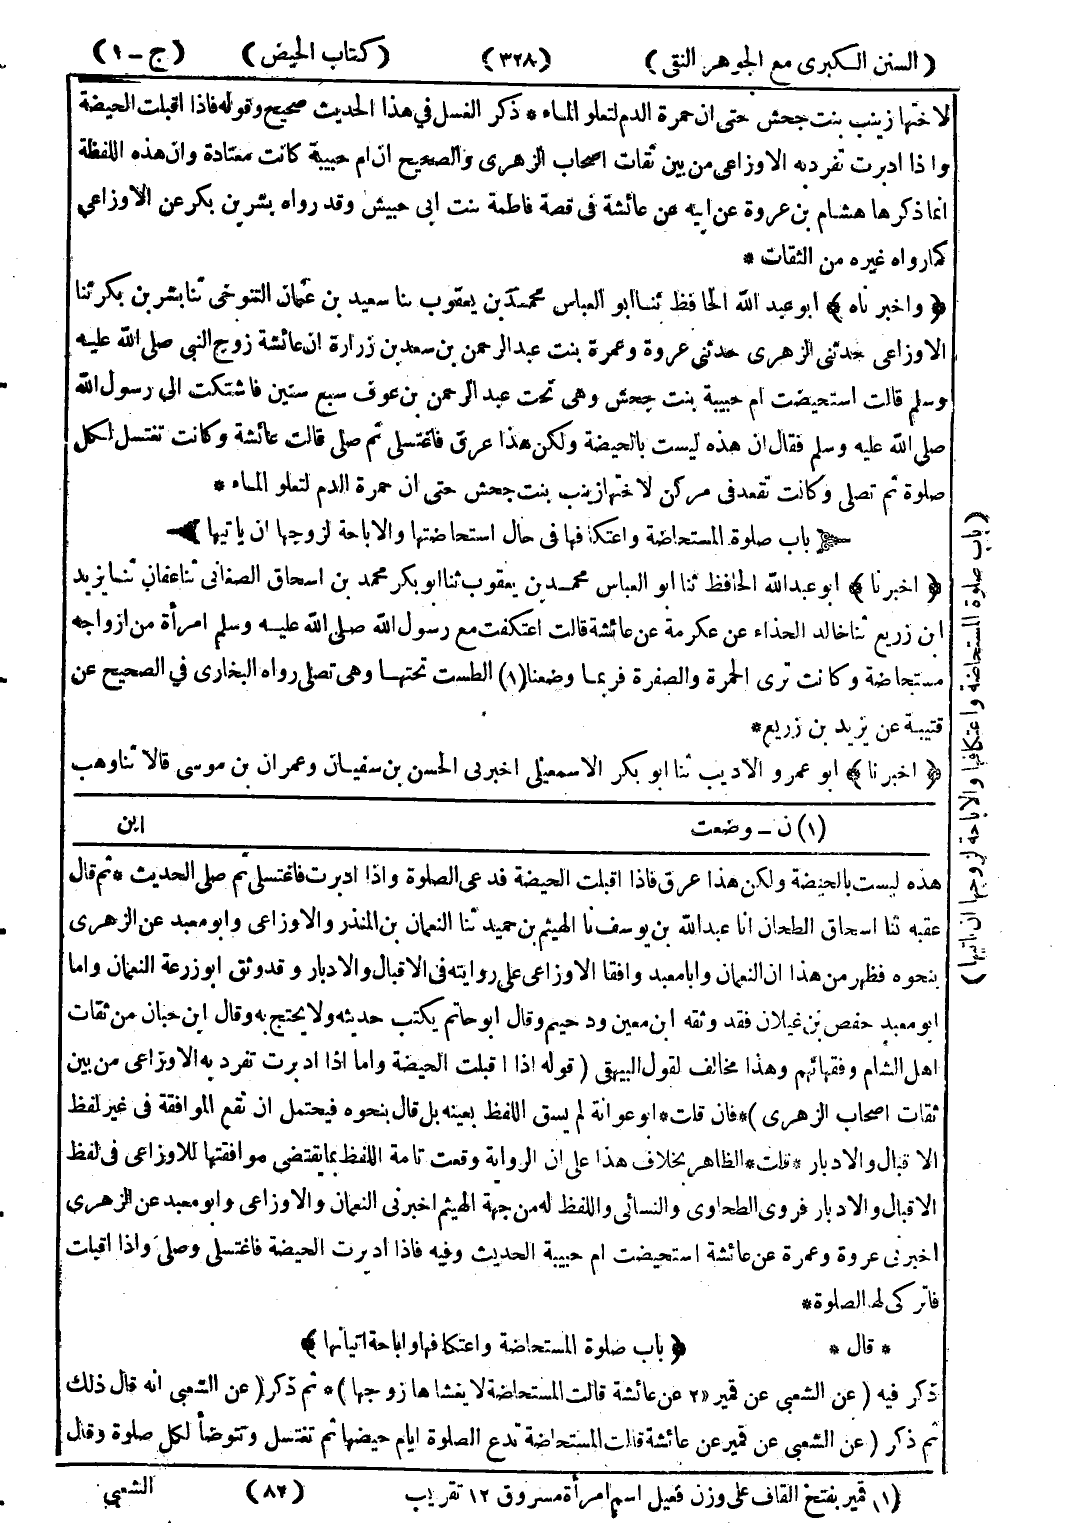 (السنن الكبرى مع الجوهر النقى) (٣٢٨) (كتاب الحيض) (ج - ١)
لاختها زينب بنت جحش حتى ان حمرة الدم لتعلو الماء * ذكر الغسل في هذا الحديث صحيح وقوله فاذا اقبلت الحيضة
واذا ادبرت تفرد به الاوزاعى من بين ثقات اصحاب الزهرى والصحيح ان ام حبيبة كانت معتادة وان هذه اللفظة
انما ذكرها هشام بن عروة عن ابيه عن عائشة فى قصة فاطمة بنت ابى حبيش وقد رواه بشر بن بكر عن الاوزاعي
كما رواه غيره من الثقات *
﴿ واخبر ناه ﴾ ابو عبد الله الحافظ ثنا ابو العباس محمد بن يعقوب ثنا سعيد بن عثمان التنوخى ثنا بشر بن بكر ثنا
الاوزاعى حدثنى الزهرى حدثني عروة وعمرة بنت عبد الرحمن بن سعد بن زرارة ان عائشة زوج النبي صلى الله عليه
وسلم قالت استحيضت ام حبيبة بنت جحش وهى تحت عبد الرحمن بن عوف سبع سنين فاشتكت الى رسول الله
صلى الله عليه وسلم فقال ان هذه ليست بالحيضة ولكن هذا عرق فاغتسلى ثم صلى قالت عائشة وكانت تغتسل لكل
صلوة ثم تصلى وكانت تقعد فى مركن لاختها زينب بنت جحش حتى ان حمرة الدم لتعلو الماء *
باب صلوة المستحاضة واعتكافها فى حال استحاضتها والاباحة لزوجها ان ياتيها
﴿ اخبرنا ﴾ ابو عبدالله الحافظ ثنا ابو العباس محمد بن يعقوب ثنا ابو بكر محمد بن اسحاق الصغانى ثنا عفان ثنا يزيد
ابن زريع ثنا خالد الحذاء عن عكرمة عن عائشة قالت اعتكفت مع رسول الله صلى الله عليه وسلم امرأة من ازواجه
مستحاضة وكانت ترى الحمرة والصفرة فربما وضعنا (١) الطست تحتها وهى تصلى رواه البخارى في الصحيح عن
قتيبة عن يزيد بن زريع *
﴿ اخبرنا ﴾ ابو عمرو الاديب ثنا ابو بكر الاسمعيلى اخبرنى الحسن بن سفيان وعمران بن موسى قالا ثنا وهب
(١) ن - وضعت ابن
هذه ليست بالحيضة ولكن هذا عرق فاذا اقبلت الحيضة فدعى الصلوة واذا ادبرت فاغتسلى ثم صلى الحديث * ثم قال
عقبه ثنا اسحاق الطحان انا عبدالله بن يوسف نا الهيثم بن حميد ثنا النعمان بن المنذر والاوزاعى وابو معبد عن الزهرى
بنحوه فظهر من هذا ان النعمان وابا معبد وافقا الاوزاعى على روايته فى الاقبال والادبار وقد وثق ابو زرعة النعمان واما
ابو معبد حفص بن غيلان فقد وثقه ابن معين ودحيم وقال ابو حاتم يكتب حديثه ولا يحتج به وقال ابن حبان من ثقات
اهل الشام وفقهائهم وهذا مخالف لقول البيهقى ( قوله اذا اقبلت الحيضة واما اذا ادبرت تفرد به الاوزاعى من بين
ثقات اصحاب الزهرى ) * فان قلت * ابو عوانة لم يسق اللفظ بعينه بل قال بنحوه فيحتمل ان تقع الموافقة فى غير لفظ
الاقبال والادبار * قلت * الظاهر بخلاف هذا على ان الرواية وقعت تامة اللفظ بما يقتضى موافقتها للاوزاعى فى لفظ
الاقبال والادبار فروى الطحاوى والنسائى واللفظ له من جهة الهيثم اخبرنى النعمان والاوزاعى وابو معبد عن الزهرى
اخبرنى عروة وعمرة عن عائشة استحيضت ام حبيبة الحديث وفيه فاذا ادبرت الحيضة فاغتسلى وصلى واذا اقبلت
فاتركى لها الصلوة *
* قال * ﴿ باب صلوة المستحاضة واعتكافها واباحة اتيانها ﴾
ذكر فيه ( عن الشعبى عن قمير «٢ عن عائشة قالت المستحاضة لا يغشاها زوجها ) * ثم ذكر ( عن الشعبى انه قال ذلك
ثم ذكر ( عن الشعبى عن قمير عن عائشة قالت المستحاضة تدع الصلوة ايام حيضها ثم تغتسل وتتوضأ لكل صلوة وقال
(١) قمير بفتح القاف على وزن فعيل اسم امرأة مسروق ١٢ تقريب (٨٢) الشعبى
(باب صلوة المستحاضة واعتكافها والاباحة لزوجها ان اتيها)